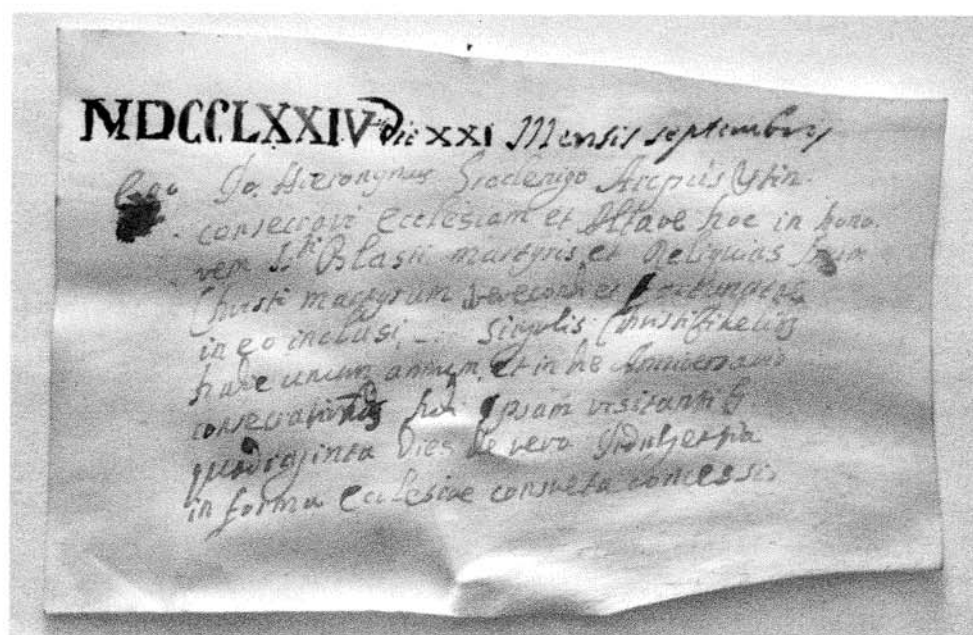 MDCCLXXIV die XXI Mensis septembris
Ego Jo. Hieronymus Gradenigo Arcpus Utin.
consecravi Ecclesiam et Altare hoc in hono
rem Sti Blasii martyris, et Reliquias
Christi martyrum et
in eo inclusi, _. singulis Christi fidelibus
hodie unum annum, et in die Anniversario
ipsam visitantib
quadraginta Dies de vera Indulgentia
in forma ecclesiae consueta concessi.